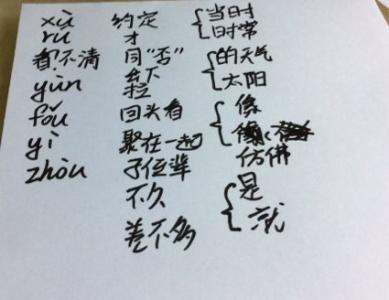 xù
rú
不清
yùn
fǒu
yì
zhòu
约定
才
同"否"
下
拉
回头看
聚在一起
子位辈
不久
差不多
当时
时常
的天气
太阳
像
像、
仿佛
是
就